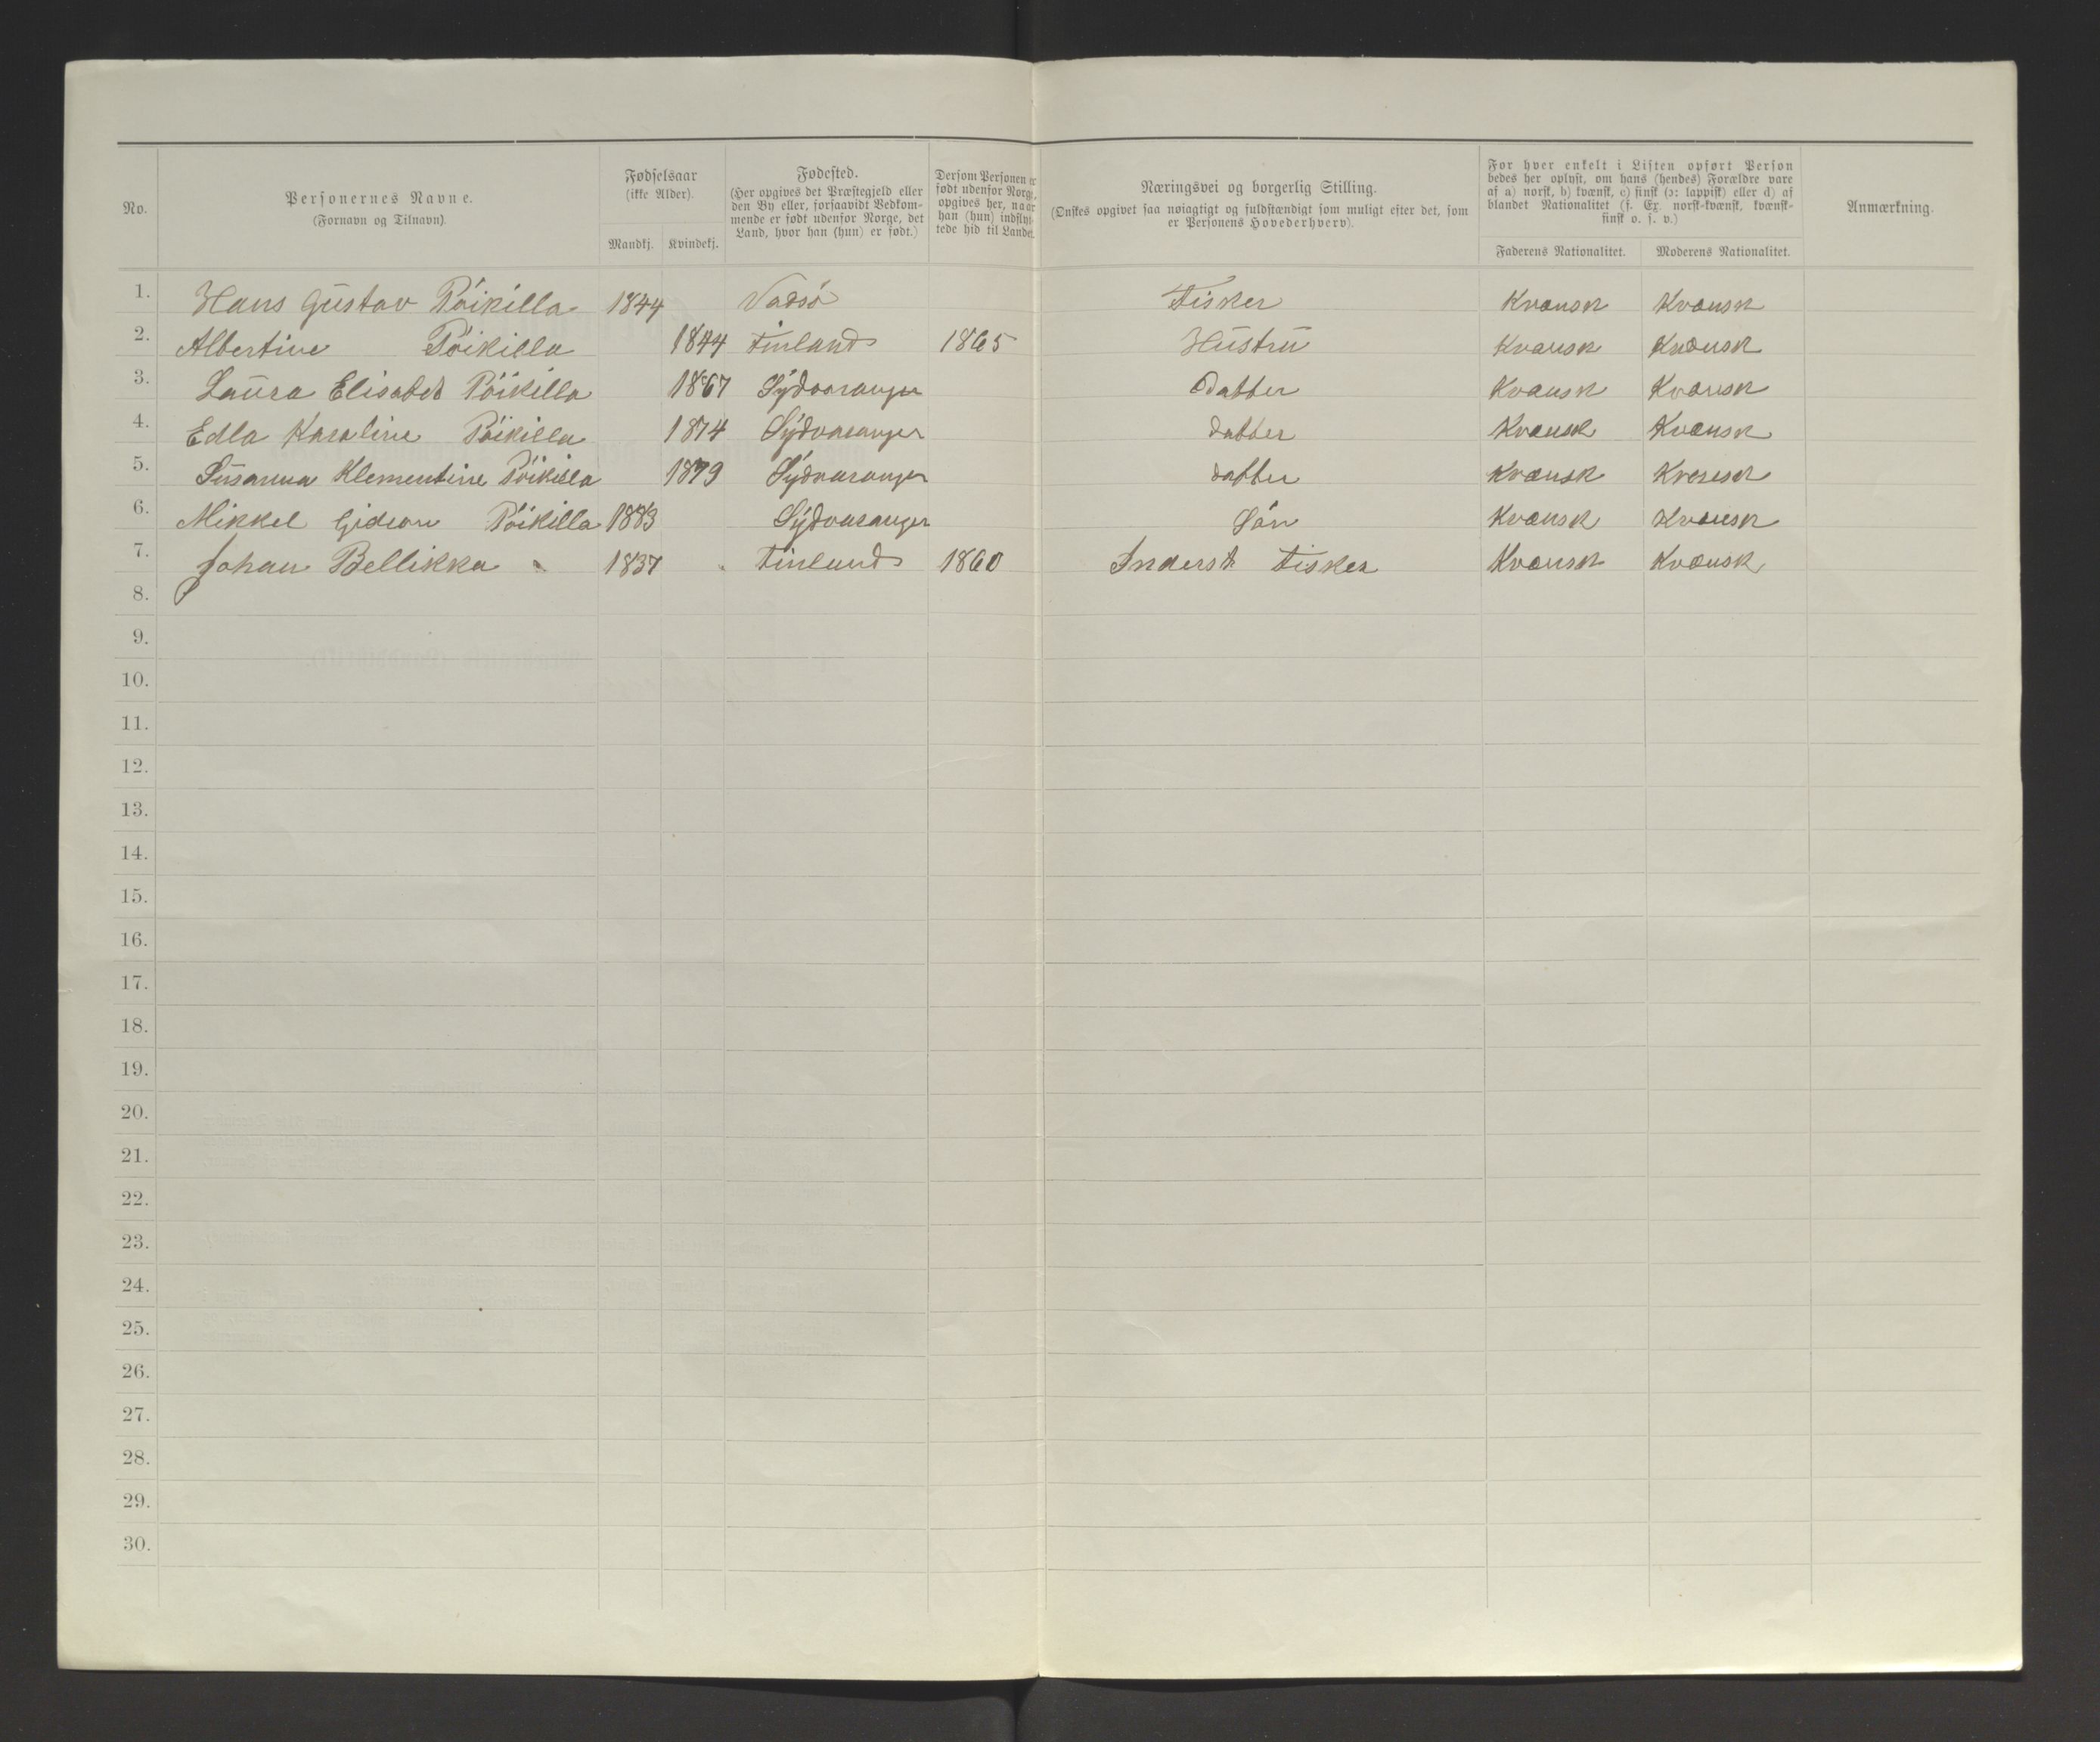 No.
Personernes Navne.
(Fornavn og Tilnavn).
Fødselsaar
(ikke Alder).
Mandkj. Kvindekj.
Fødested.
(Her opgives det Præstegjeld eller
den By eller, forsaavidt Vedkom-
mende er født udenfor Norge, det
Land, hvor han (hun) er født.)
Dersom Personen er
født udenfor Norge,
opgives her, naar
han (hun) indflyt-
tede hid til Landet.
Næringsvei og borgerlig Stilling.
(Ønskes opgivet saa nøiagtigt og fuldstændigt som muligt efter det, som
er Personens Hovederhverv).
For hver enkelt i Listen opført Person
bedes her oplyst, om hans (hendes) Forældre vare
af a) norsk, b) kvænsk, c) finsk (ɔ: lappisk) eller d) af
blandet Nationalitet (f. Ex. norsk-kvænsk, kvænsk-
finsk o. s. v.)
Faderens Nationalitet. Moderens Nationalitet.
Anmærkning.
1. Hans Gustav Pöikilla 1844 Vadsö Fisker Kvænsk Kvænsk
2. Albertine Pöikilla 1844 Finland 1865 Hustru Kvænsk Kvænsk
3. Laura Elisabet Pöikilla 1867 Sydvaranger Datter Kvænsk Kvænsk
4. Edla Karoline Pöikilla 1874 Sydvaranger datter Kvænsk Kvænsk
5. Susanna Klementine Pöikilla 1879 Sydvaranger datter Kvænsk Kvænsk
6. Mikkel Gideon Pöikilla 1883 Sydvaranger Sön Kvænsk Kvænsk
7. Johan Bellikka 1837 Finland 1860 Inderst Fisker Kvænsk Kvænsk
8.
9.
10.
11.
12.
13.
14.
15.
16.
17.
18.
19.
20.
21.
22.
23.
24.
25.
26.
27.
28.
29.
30.